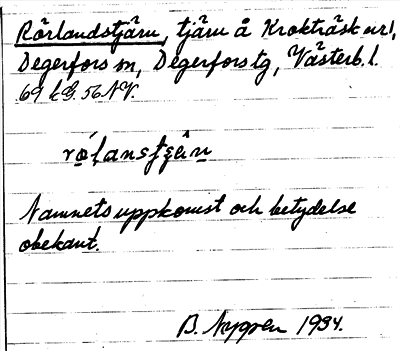 Rörlandstjärn, tjärn å Krokträsk url,
Degerfors sn, Degerfors tg, Västerb. l.
69 k G. 56 NV.
Namnets uppkomst och betydelse
obekant.
B. Nygren 1934.